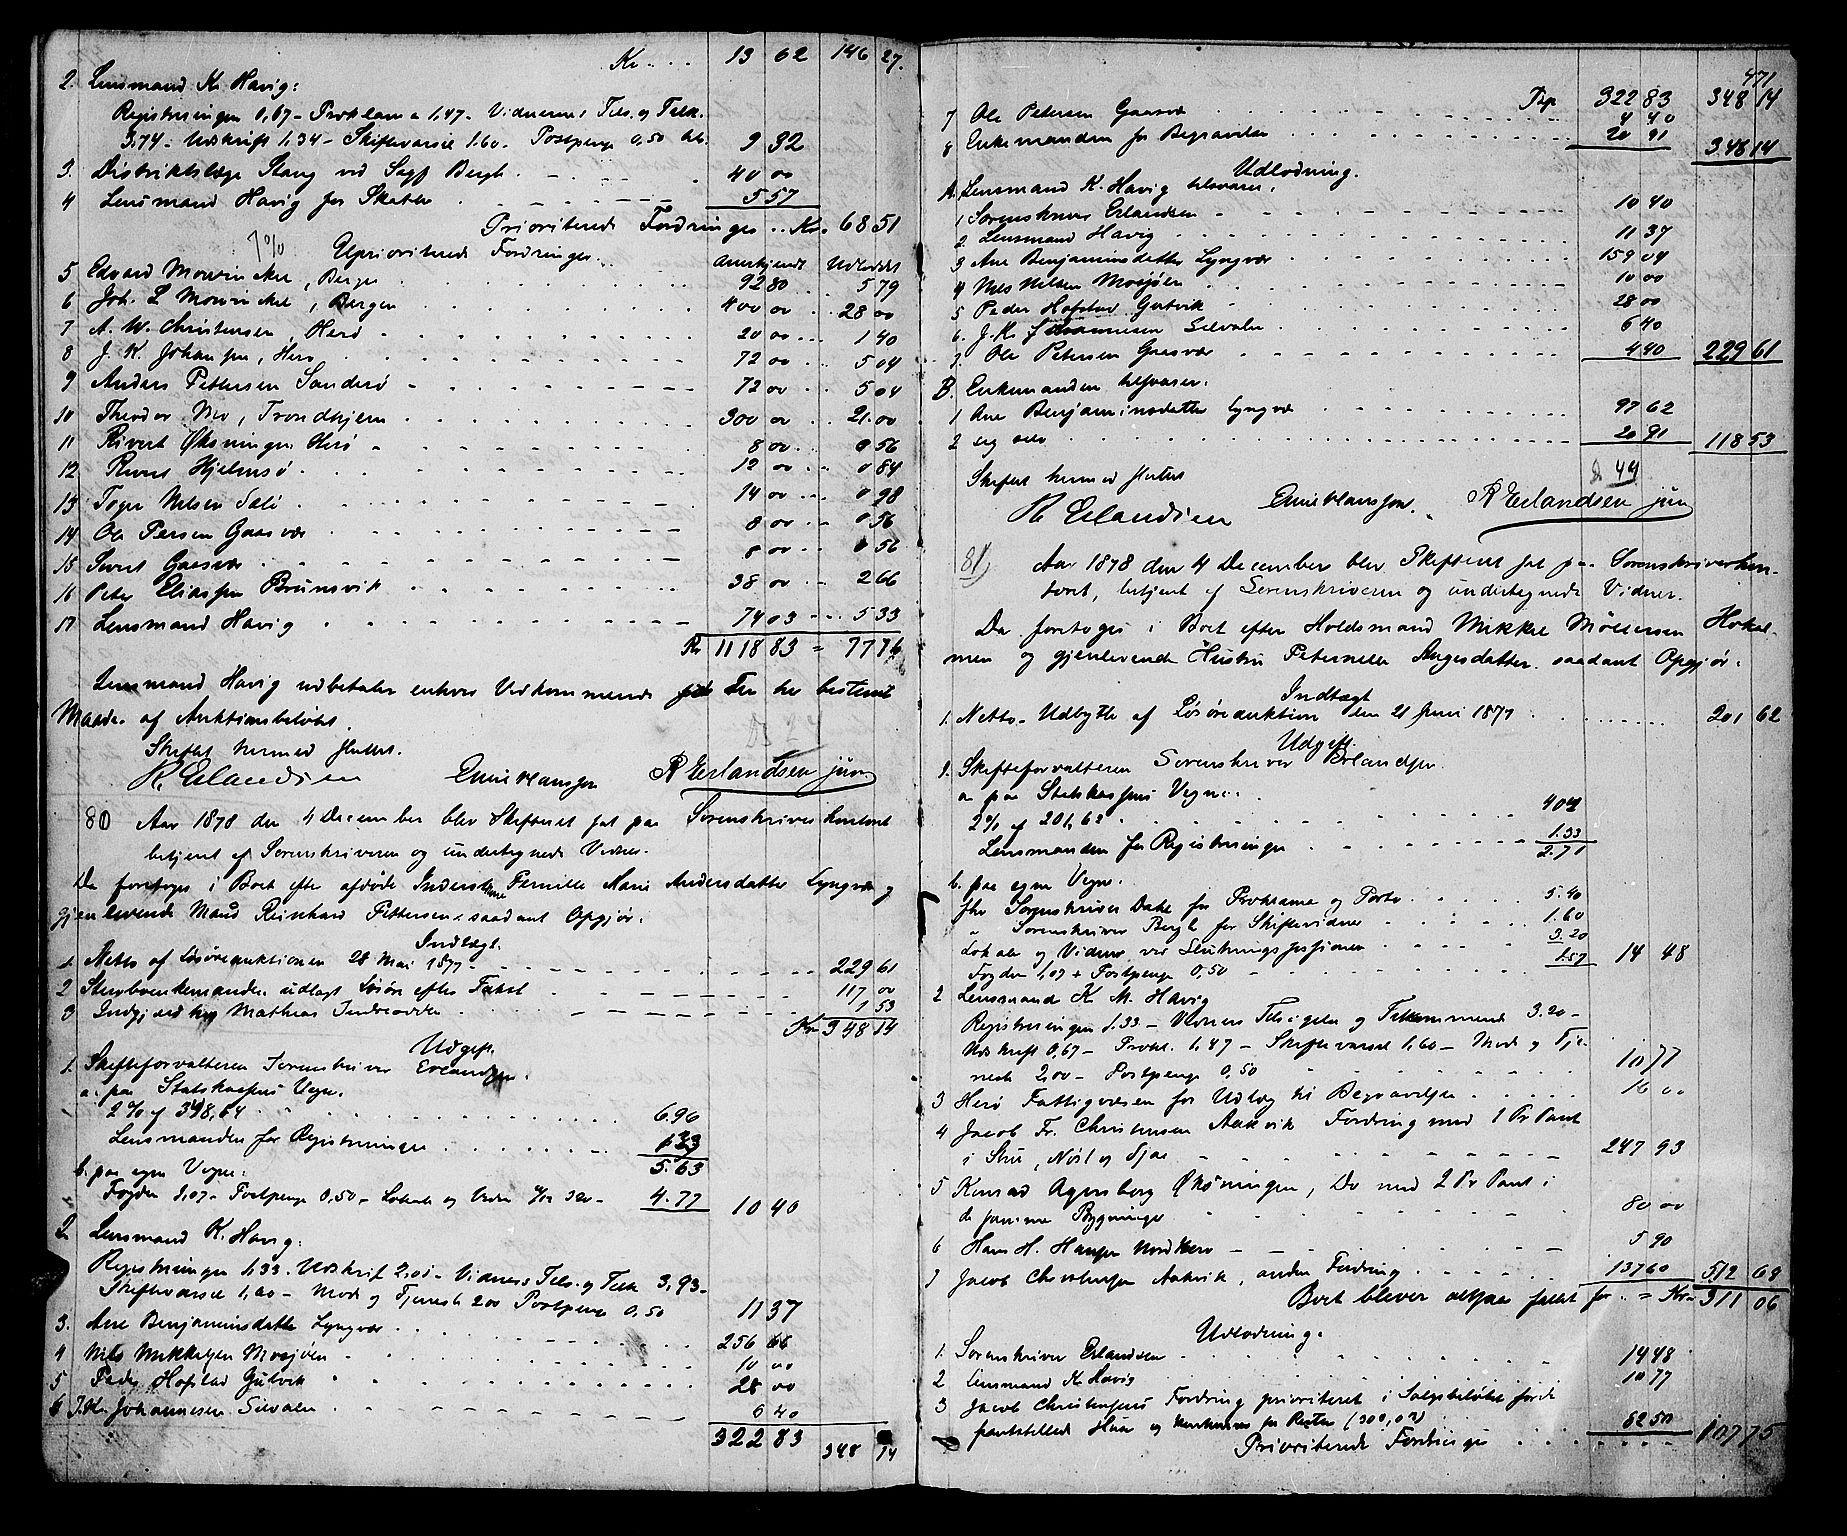 Kr.... 13 62 146 27.
2. Lensmand K. Havig:
Registreringen 0,67 - Proklama 1,47 - Vidnernes Tils. og Telk.
3,74 - Udskrift 1,34 - Skiftevarsel 1.60 - Postpenge 0,50
9 32
3. Distriktslæge Stang ved Sagf. Bergh . . 40 00
4 Lensmand Havig for Skatter . . 5 57
Prioriterede Fordringer .. Kr. 68 51
7% Uprioriterede Fordringer. Anerkjendt Udloddet
5 Edvard Mowinckel, Bergen . . 92 80 . . 5 79
6 Joh. L Mowinckel, Bergen . . 400 00 . . 28 00
7 A. W. Christensen, Herø . . 20 00 . . 1 40
8 J. K. Johansen, Herø . . 72 00 . . 5 04
9 Anders Pettersen Sanderø . . 72 00 . . 5 04
10 Theodor Mo, Trondhjem . . 300 00 . . 21.00
11 Sivert Øksningen Herø . . 8 00 . . 0 56
12 Hjelmsø . . 12 00 . . 0 84
13 Nilsen . . 14 00 . . 0 98
14 Ole Persen Gaasvær . . 8 00 . . 0 56
15 Sivert Gaasvær . . 8 00 . . 0 56
16 Peter Eliassen Brunsvik . . 38 00 . . 2 66
17 Lensmand Havig . . 74 03 . . 5 33
Kr 1118 83 = 77 76
Lensmand Havig udbetaler enhver Vedkommende det ham bestemt
Maade af Auktionsbeløbet.
Skiftet hermed sluttet.
R. Erlandsen Emil Hansen R Erlandsen jun
80 Aar 1878 den 4 December blev Skifteret sat paa Sorenskriverkontoret
betjent af Sorenskriveren og undertegnede Vidner.
Da foretoges i Boet efter afdøde Inderst Pernille Marie Andersdatter Lyngvær og
gjenlevende Mand Reinhard Pettersen saadant Opgjør:
Indtægt.
1 Netto af Løsøreauktionen 28 Mai 1877 - - - 229 61
2 Sterboenkemanden udlagt Løsøre efter Takst - - - 117 00
3 Indgjæld hos Mathias Indreodden . . 1 53
Kr 348 14
Udgift.
1. Skifteforvalteren Sorenskriver Erlandsen.
a. paa Statskassens Vegne.
2% af 348,64 . . 6.90
Lensmanden for Registreringen . . 1 33
5.63
b. paa egne Vegne:
Fogden 1,07 - Postpenge 0,50 - Lokale og Vidner 3 20 - 4.77 10 40
2 Lensmand K. Havig:
Registreringen 1,33 - Udskrift 2,01 - Vidners Tils. og Telk 3,93 -
Skiftevarsel 1,60 - Møde og Tjeneste 2.00 Postpenge 0,50 11 37
3. Ane Benjaminsdatter Lyngvær . . 256 66
4 Nils Mikkelsen Mosjøen . . 10 00
5 Peder Hofstad Gutvik . . 28 00
6 J.K. Johannesen Selvalen . . 6 40
322 83 348 14
471
Trsp 322 83 348 14
7 Ole Petersen Gaasvær . . 4 40
8 Enkemanden for Begravelse . . 20 91 348 14
Udlodning.
A. Lensmand K. Havig tilsvarer:
1 Sorenskriver Erlandsen . . 10 40
2. Lensmand Havig . . 11 37
3 Ane Benjaminsdatter Lyngvær . . 159 04
4 Nils Nilsen Mosjøen . . 10 00
5 Peder Hofstad Gutvik . . 28 00
6. J. K. Johannesen Selvalen . . 6 40
7. Ole Petersen Gaasvær . . 4 40 229 61
B. Enkemanden tilsvarer:
1 Ane Benjaminsdatter Lyngvær . . 97 62
2 sig selv . . 20 91 118 53
Skiftet hermed sluttet 44
R Erlandsen Emil Hansen. R Erlandsen jun
81) Aar 1878 den 4 December blev Skifteret sat paa Sorenskriverkon-
toret, betjent af Sorenskriveren og undertegnede Vidner.
Da foretoges i Boet efter Holdsmand Mikkel Mortensen Hokal-
men og gjenlevende Hustru Peternella Angesdatter saadant Opgjør:
Indtægt
1. Netto-Udbytte af Løsøreauktion den 21 Juni 1877 . . 201 62
Udgift.
1. Skifteforvalteren Sorenskriver Erlandsen.
a paa Statskassens Vegne.
2% af 201,62 . . 4 04
Lensmanden for Registreringen . . 1.33
2.71
b. paa egne Vegne.
fhv Sorenskriver Dahl for Proklama og Porto . . 5.40
" Sorenskriver Bergh for Skiftevidner . . 1.60
Lokale og Vidner ved Slutningssessionen . . 3.20
Fogden 1,07 + Postpenge 0,50 - - 1.57 14 48
2 Lensmand K. M. Havig
Registreringen 1.33 - Vidners Tilsigelse og Tilkommende 3.20 -
Udskrift 0,67 - Prokl. 1,47 - Skiftevarsel 1,60 - Møde og Tje-
neste 2,00 - Postpenge 0,50 10 77
3 Herø Fattigvæsen for Udlæg til Begravelsen . . 16 00
4 Jacob Fr. Christensen Aakvik Fordring med 1 Pr Pant
i Stue, Nøst og Fjøs . . 247 93
5 Konrad Agersborg Øksningen, Do med 2 Pr Pant i
de samme Bygninger - - 80 00
6 Hans H. Hansen Nordherø - - 5 90
7 Jacob Christensen Aakvik, anden Fordring . . 137 60 512 68
Boet bliver altsaa fallit for . . = Kr. 311 06
Udlodning:
1. Sorenskriver Erlandsen . . 14 48
2 Lensmand K Havig . . 10 77
3 Jacob Christensens Fordring prioriteret i Salgsbeløbet for de
pantstillede Huse og . . 82 50
Prioriterede Fordringer . . 107 75